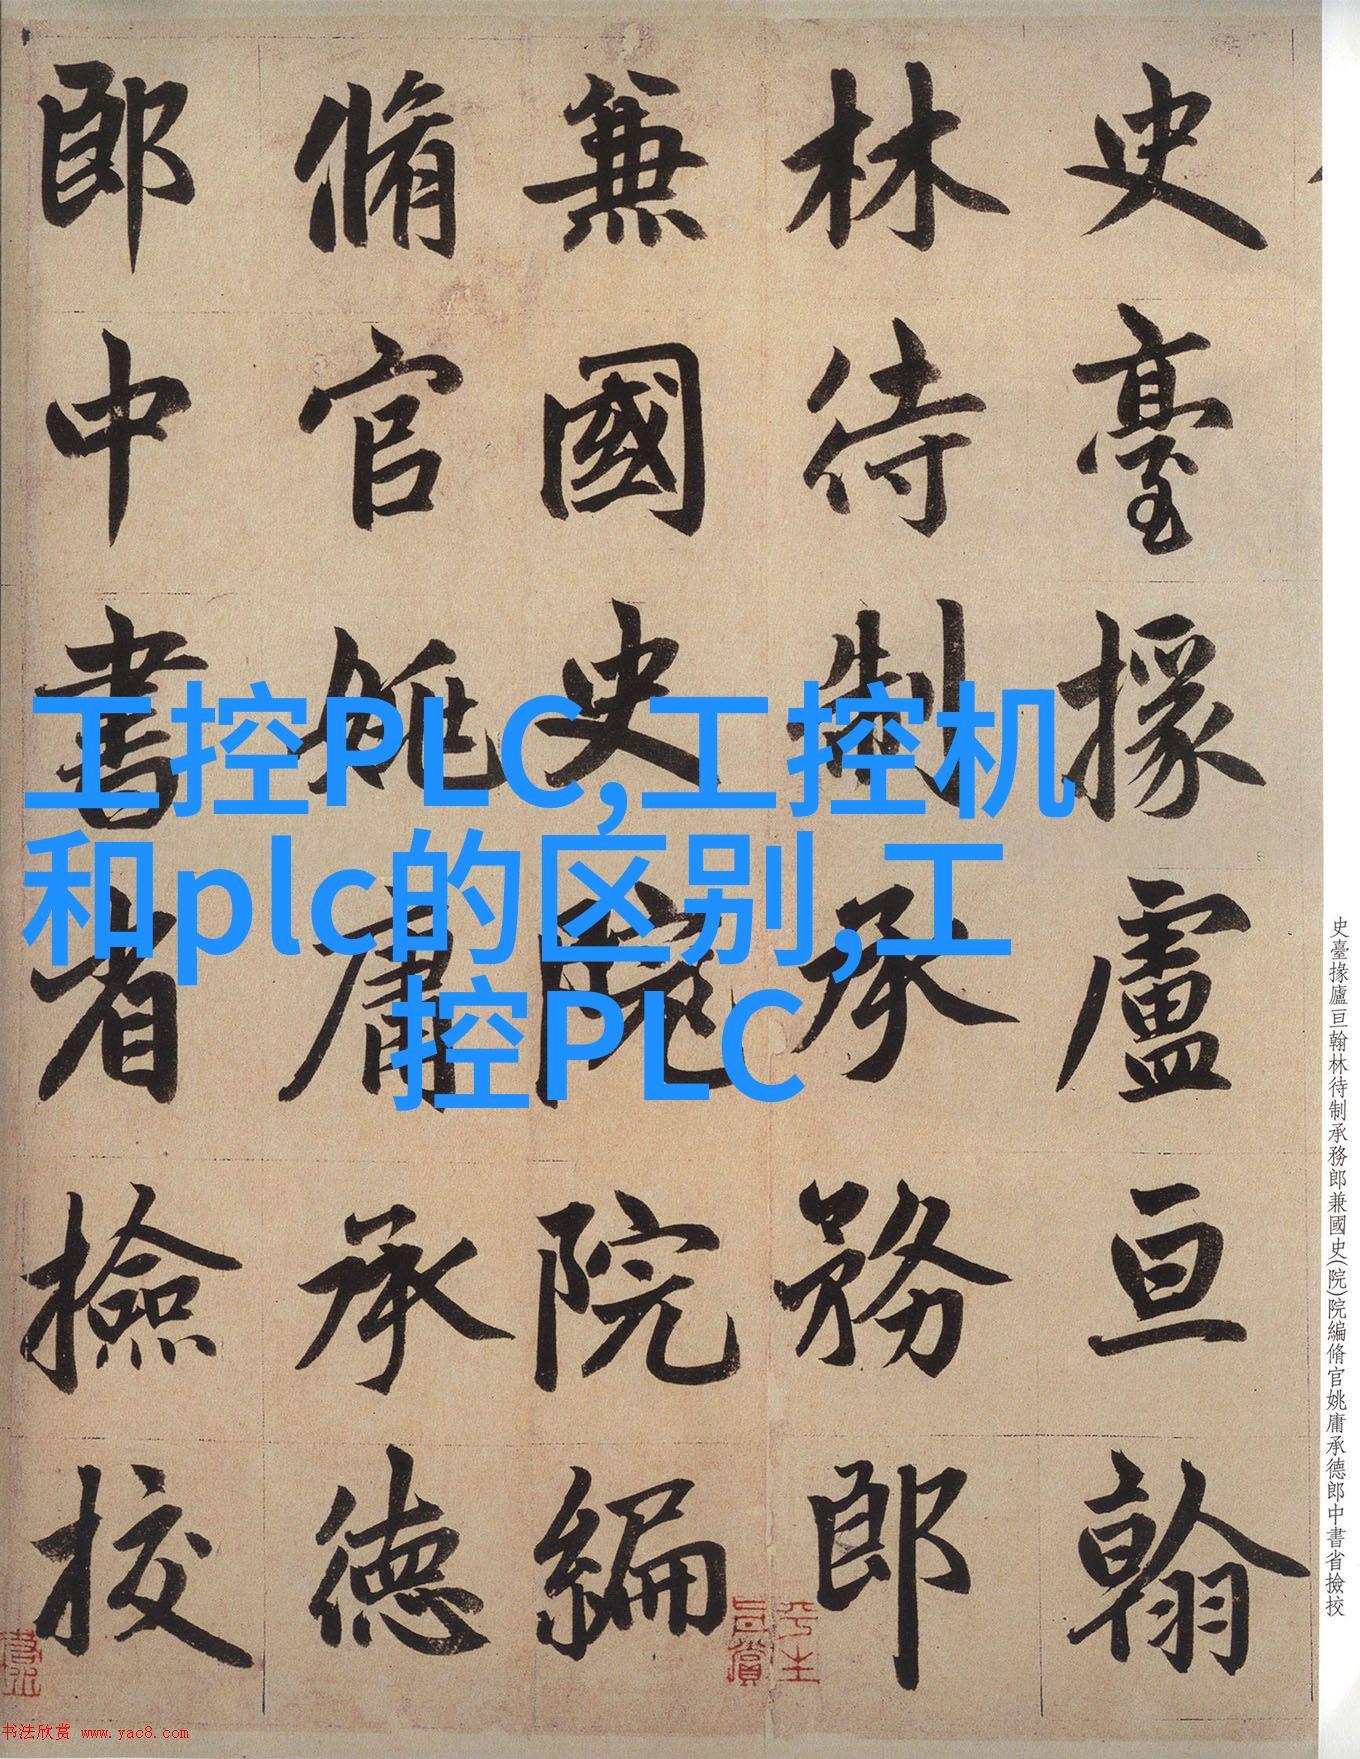 史臺掾盧亘翰
林待制承務郎
兼國史院院編
脩官姚庸承德
郎中書省撿挍
工控PLC,工控机
和plc的区别,工
控PLC
史臺掾廬亘翰林待制承務郎兼國史(院)院編脩官姚庸承德郎中書省撿挍
书法欣赏 www.yac8.com